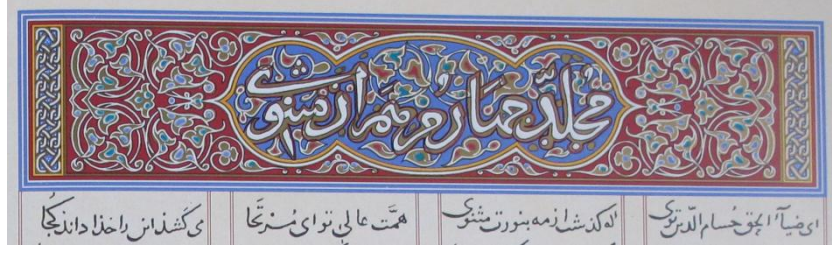 مجلد چهارم از مثنوی
ای ضیاء الحق حسام الدین توی که گذشت از مه بنورت مثنوی همّت عالی تو ای مُرتَجا می کَشَد این را خدا داند کُجا